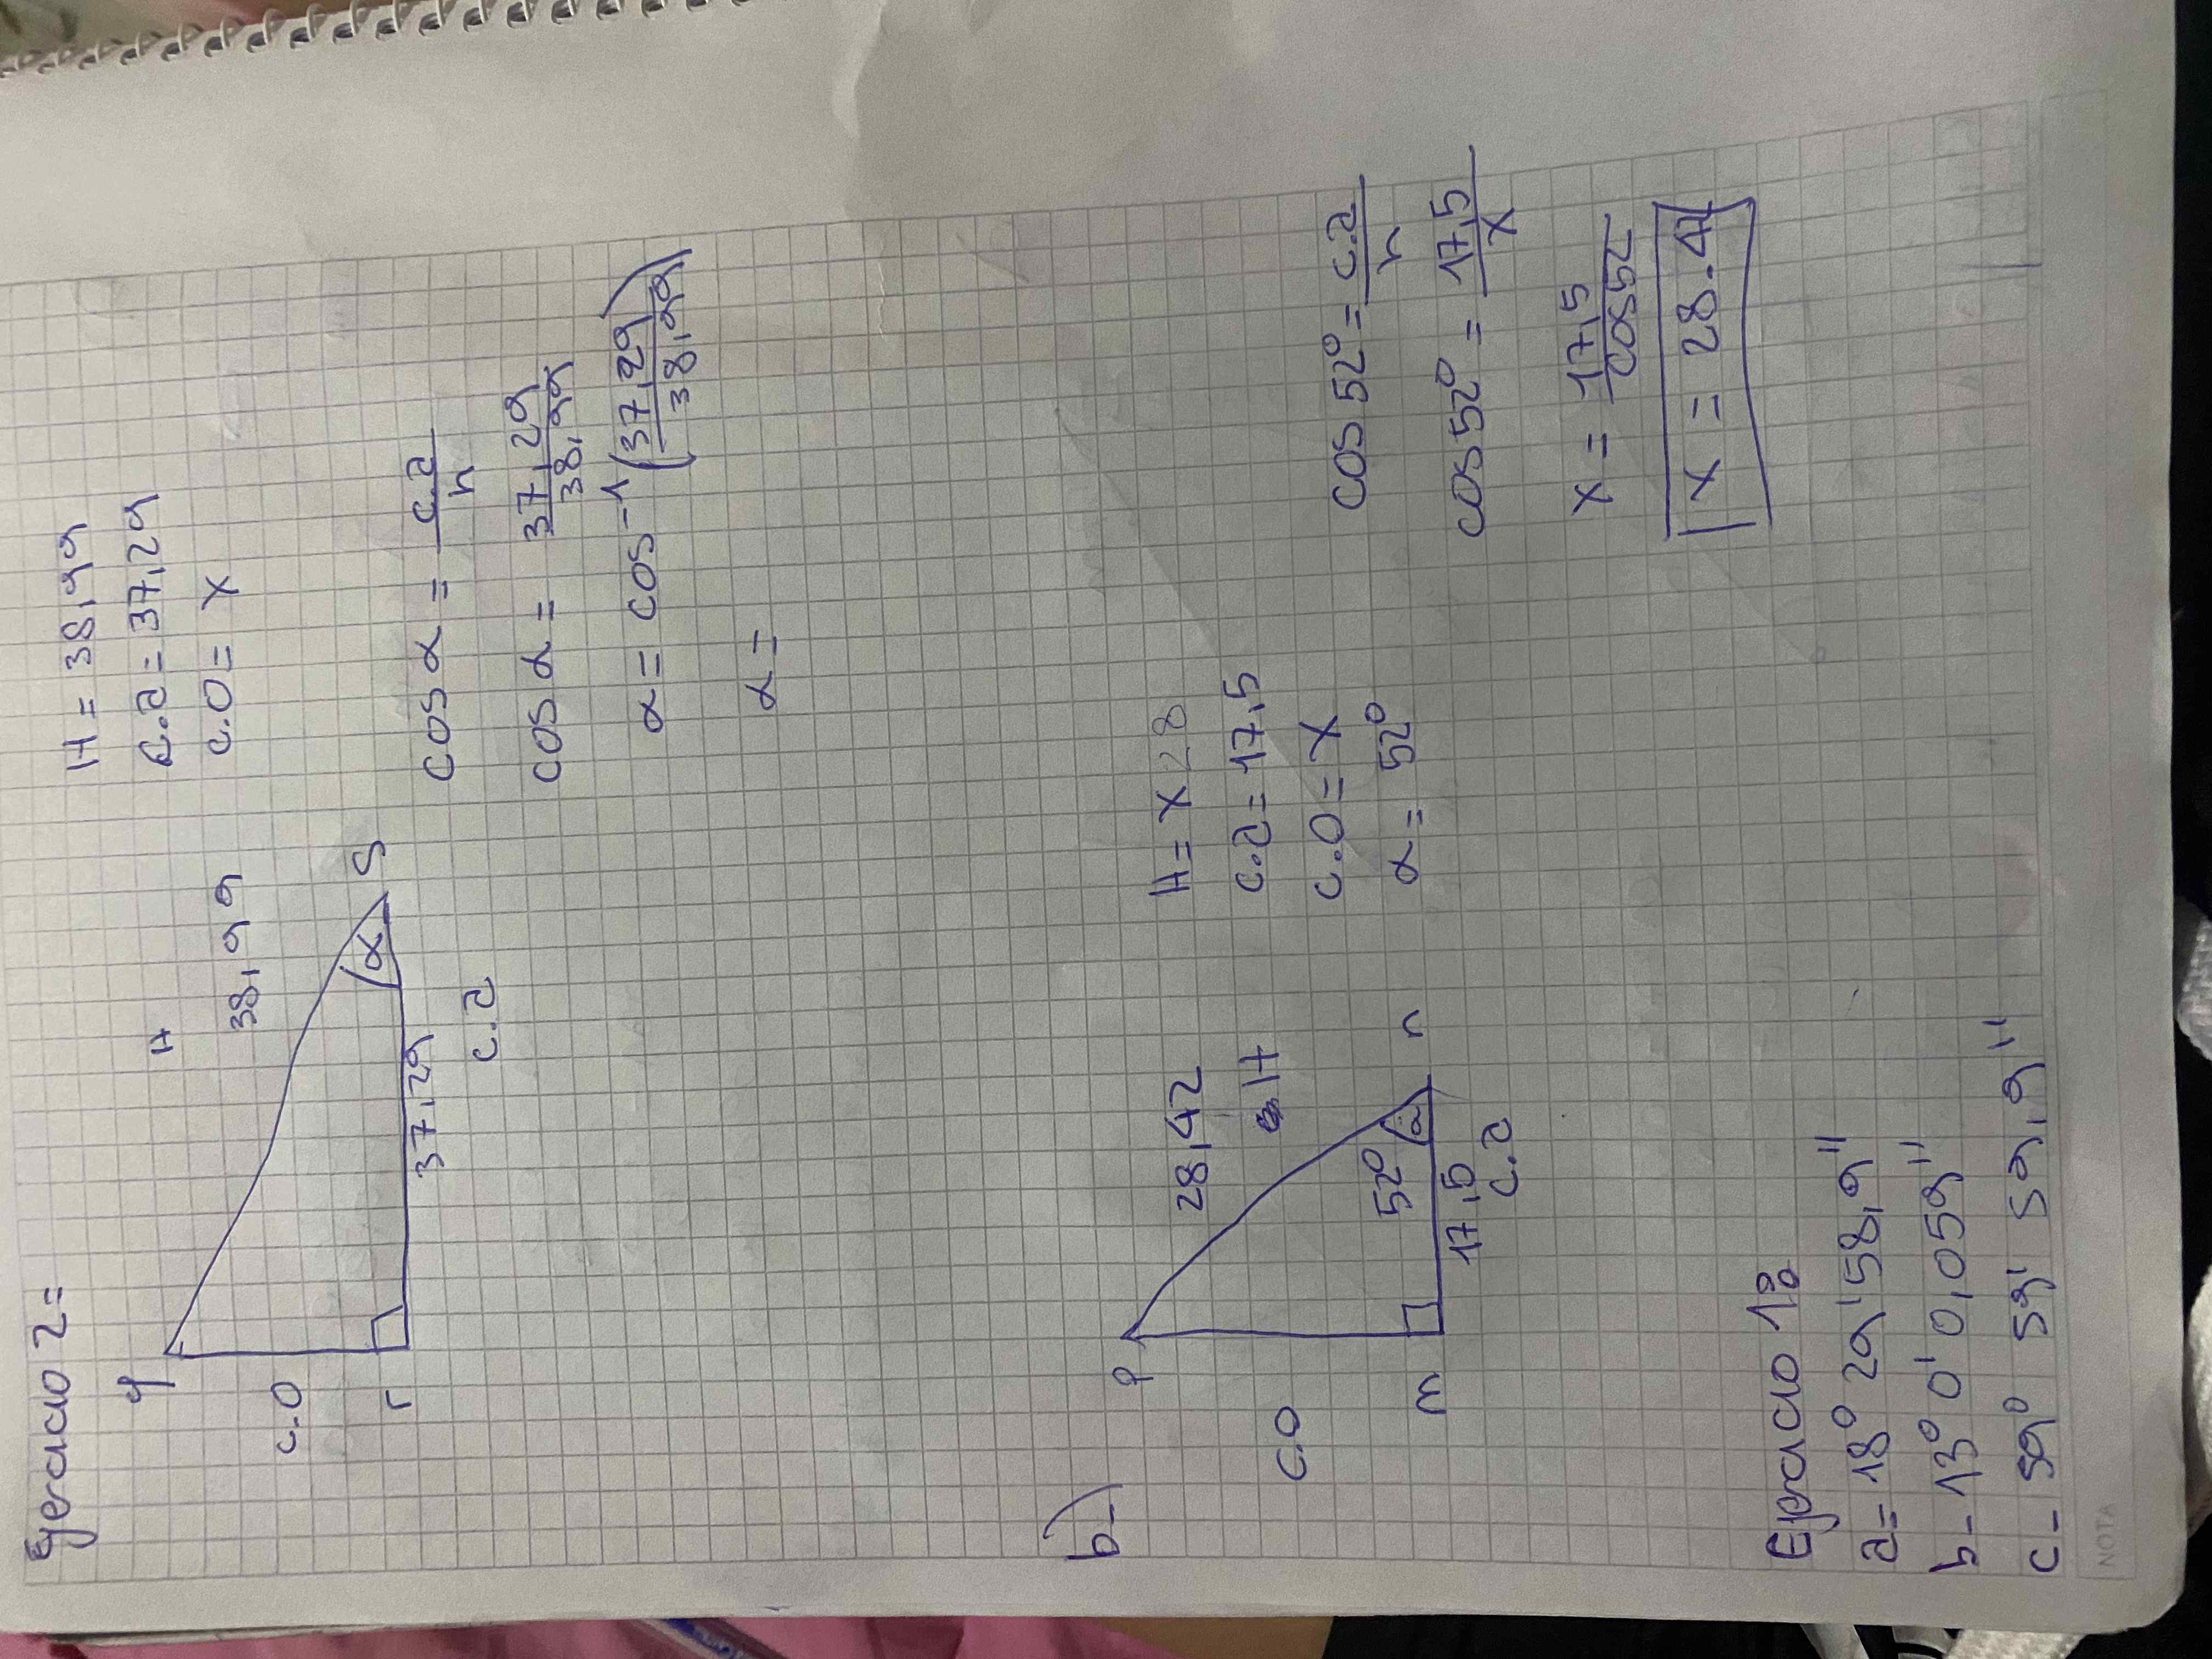 Ejercicio 2=
q
H
38,99
c.o
α
S
r
37,29
c.a
H = 38,99
c.a = 37,29
c.o = X
cos α = c.a / h
cos α = 37,29 / 38,99
α = cos⁻¹ (37,29 / 38,99)
α =
b-)
P
28,42
H
c.o
52°
m
17,5
n
c.a
H = X 28
c.a = 17,5
c.o = X
α = 52°
cos 52° = c.a / h
cos 52° = 17,5 / X
X = 17,5 / cos 52
X = 28.4
Ejercicio 1:
a= 18° 29' 58,9"
b- 13° 0' 0,059"
c- 59° 59' 59,9"
NOTA